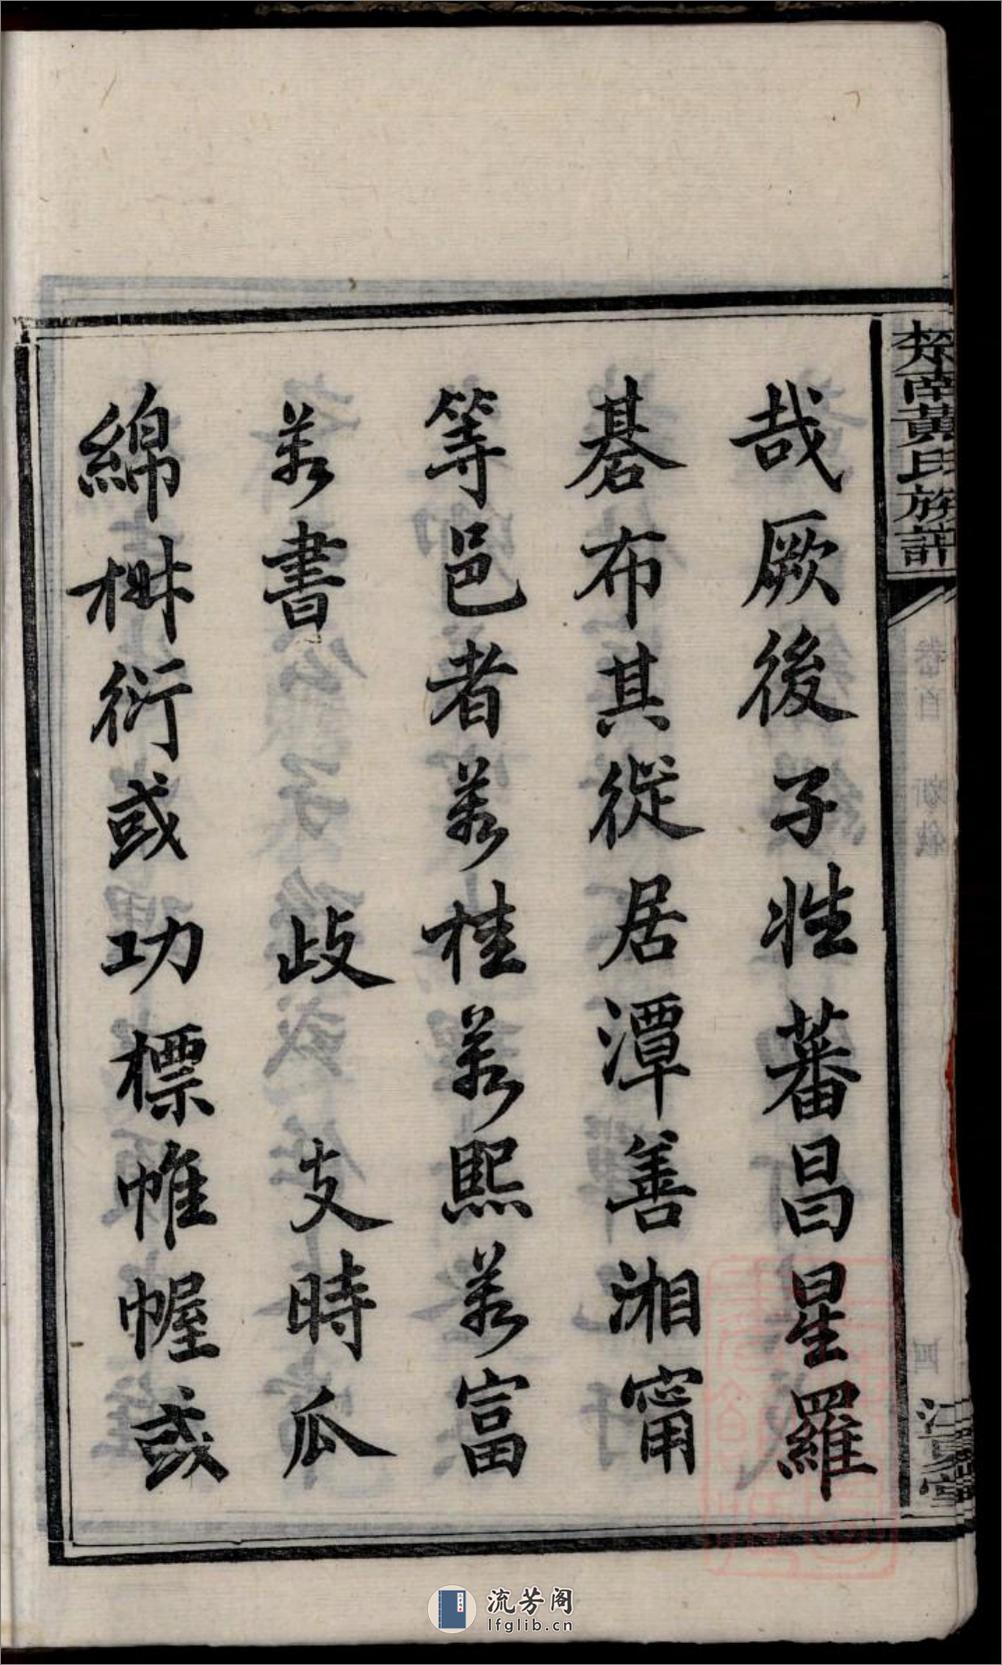 哉厥後子姓蕃昌星羅
棊布其從居潭善湘甯
等邑者若桂若熙若富
若書 歧 支時瓜
綿椒衍或功標帷幄或
南黃氏族譜
江夏堂
流芳阁
lfglib.cn